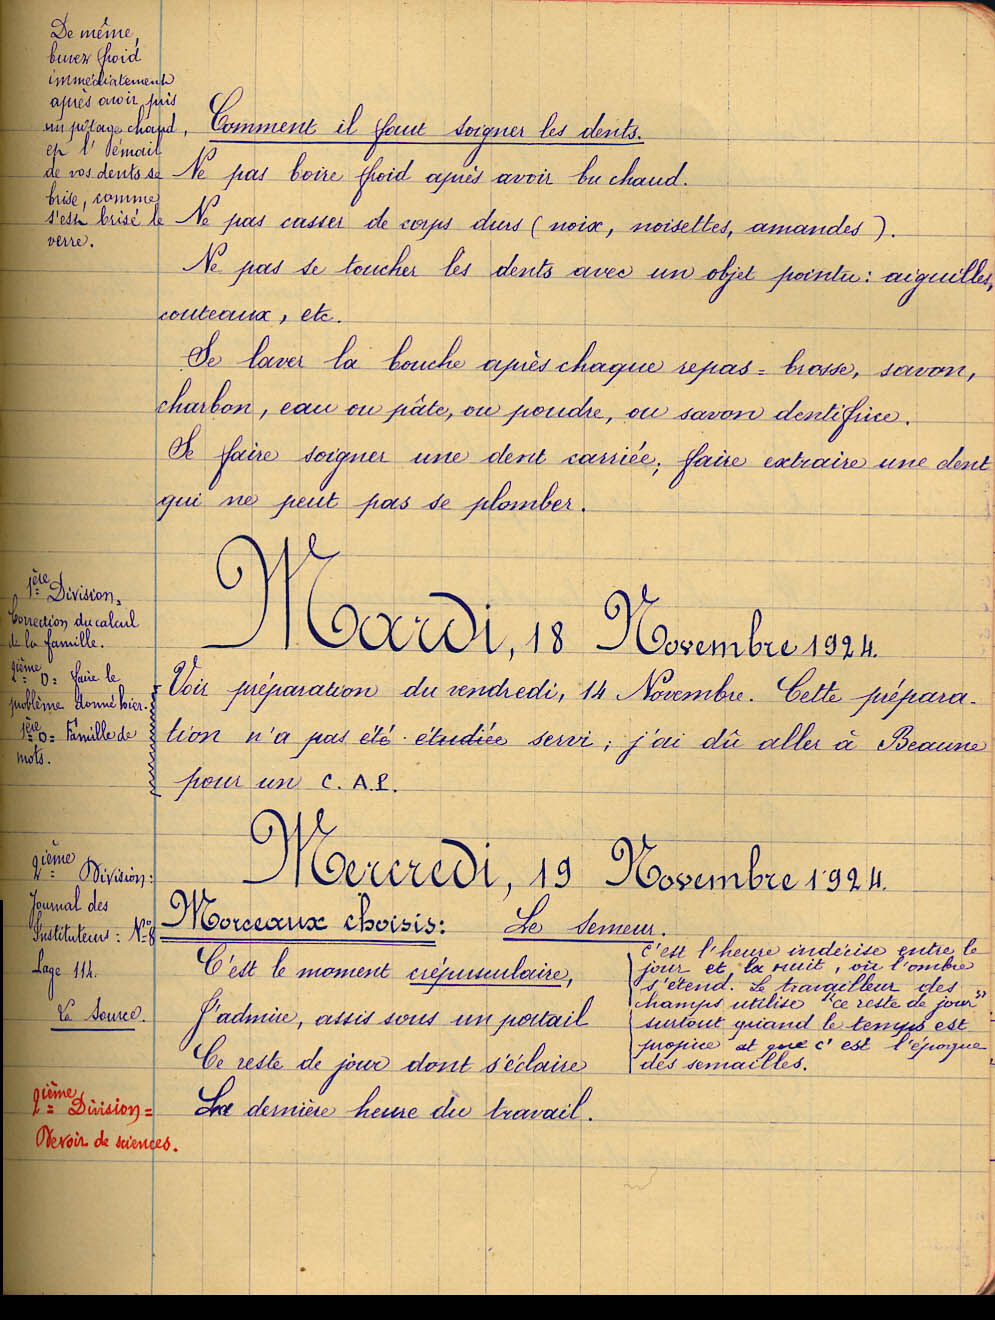 De même,
buvez froid
immédiatement
après avoir pris
un potage chaud,
et l'émail
de vos dents se
brise, comme
s'est brisé le
verre.
Comment il faut soigner les dents.
Ne pas boire froid après avoir bu chaud.
Ne pas casser de corps durs ( noix, noisettes, amandes ).
Ne pas se toucher les dents avec un objet pointu : aiguilles,
couteaux, etc.
Se laver la bouche après chaque repas = brosse, savon,
charbon, eau ou pâte, ou poudre, ou savon dentifrice.
Se faire soigner une dent carriée; faire extraire une dent
qui ne peut pas se plomber.
Mardi, 18 Novembre 1924.
1ère Division =
Correction du calcul
de la famille.
2ième D = faire le
problème donné hier.
1ère D = Famille de
mots.
Voir préparation du vendredi, 14 Novembre. Cette prépara-
tion n'a pas été étudiée servi ; j'ai dû aller à Beaune
pour un C.A.P.
Mercredi, 19 Novembre 1924.
2ième Division :
Journal des
Instituteurs : N° 8
Page 114.
La Source.
2ième Division =
Devoir de sciences.
Morceaux choisis : Le Semeur.
C'est le moment crépusculaire,
J'admire, assis sous un portail
Ce reste de jour dont s'éclaire
La dernière heure du travail.
C'est l'heure indécise entre le
jour et la nuit, où l'ombre
s'étend. Le travailleur des
champs utilise "ce reste de jour"
surtout quand le temps est
propice et que c'est l'époque
des semailles.